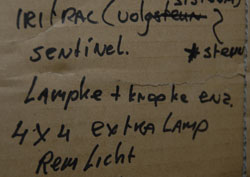 systeem
IRITRAC (volgsteun
sentinel. *steun
Lampke + knopke enz.
4x4 extra lamp
Rem licht